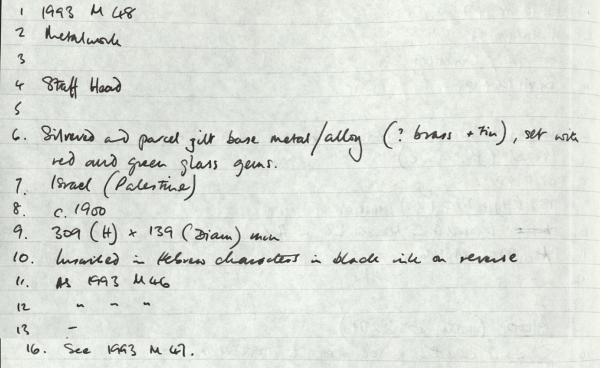 1 1993 M 48
2 Metalwork
3
4 Staff Head
5
6. Silvered and parcel gilt base metal/alloy (? brass + tin), set with
red and green glass gems.
7. Israel (Palestine)
8. c. 1900
9. 309 (H) × 139 (Diam) mm
10. Inscribed in Hebrew characters in black ink on reverse
11. As 1993 M 46
12 " " "
13 -
16. See 1993 M 47.